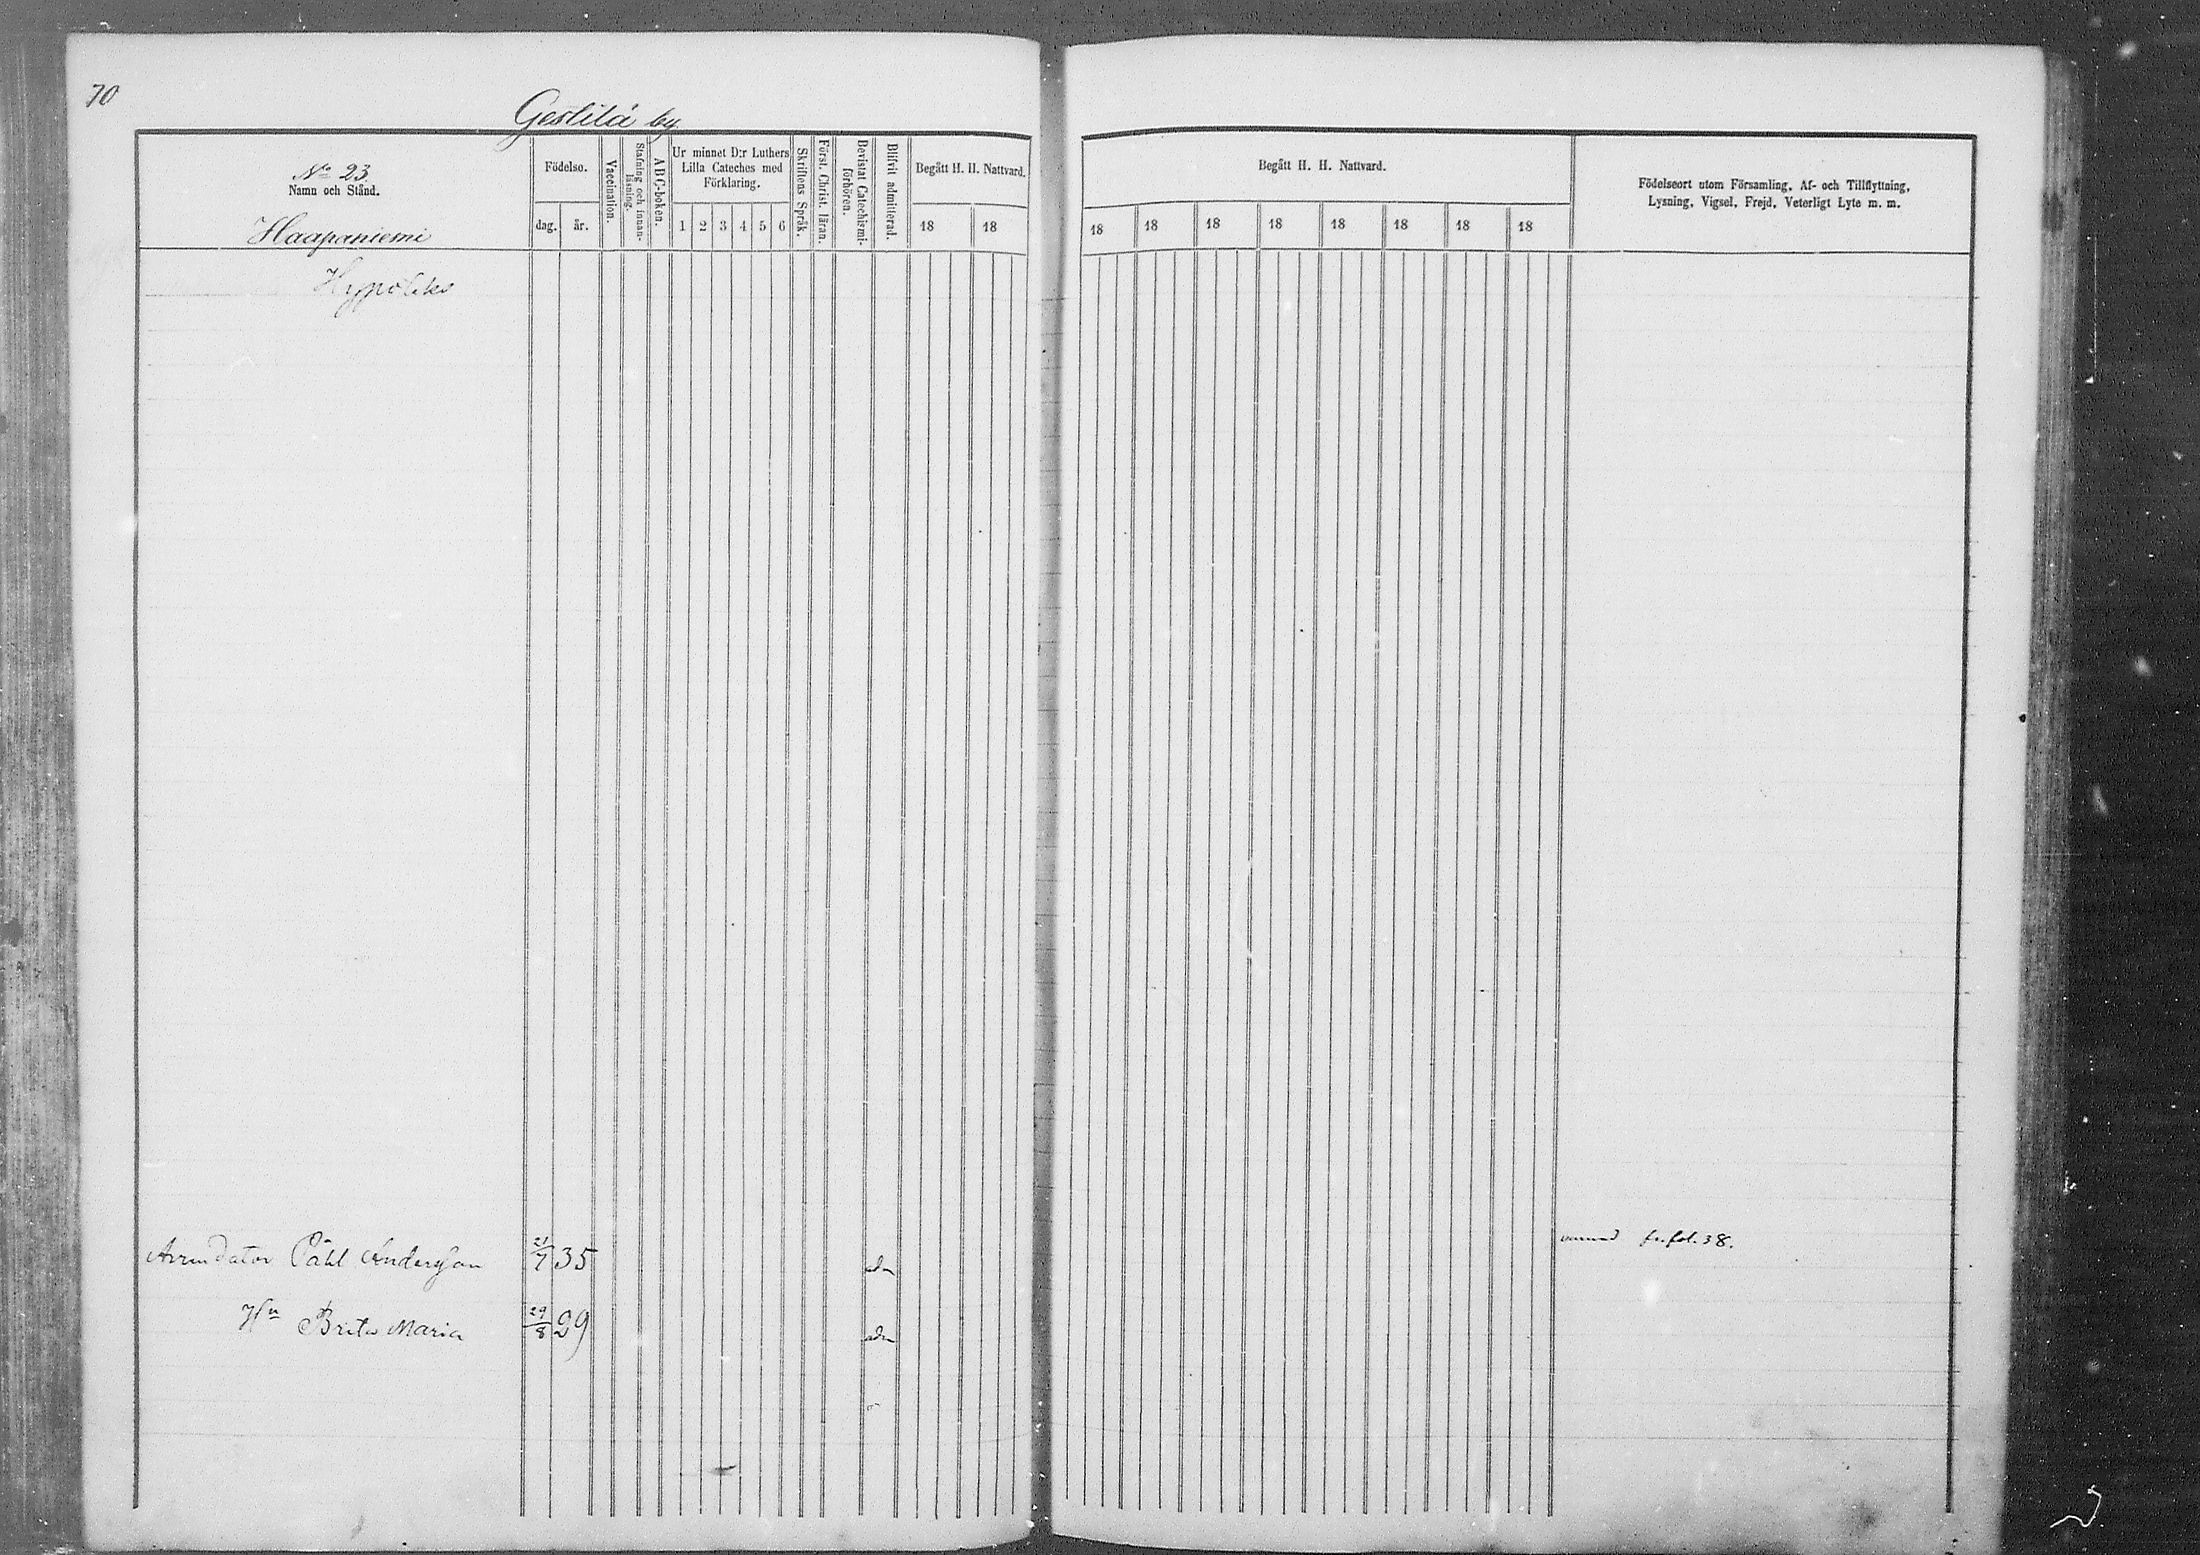 70
Gestilä by
No 23
Namn och Stånd.
Haapaniemi
Födelse.
dag. år.
Vaccination.
Stafning och innan-
läsning.
A B C-boken.
Ur minnet D:r Luthers
Lilla Cateches med
Förklaring.
1 2 3 4 5 6
Skriftens Språk.
Först. Christ. läran.
Bevistat Catechismi-
förhören.
Blifvit admitterad.
Begått H. H. Nattvard.
18 18
Begått H. H. Nattvard.
18 18 18 18 18 18 18 18
Födelseort utom Församling, Af- och Tillflyttning,
Lysning, Vigsel, Frejd, Veterligt Lyte m. m.
Arrendator Påhl Andersson 21/7 35 adm fr. fol. 38.
Hu Brita Maria 29/8 29 adm